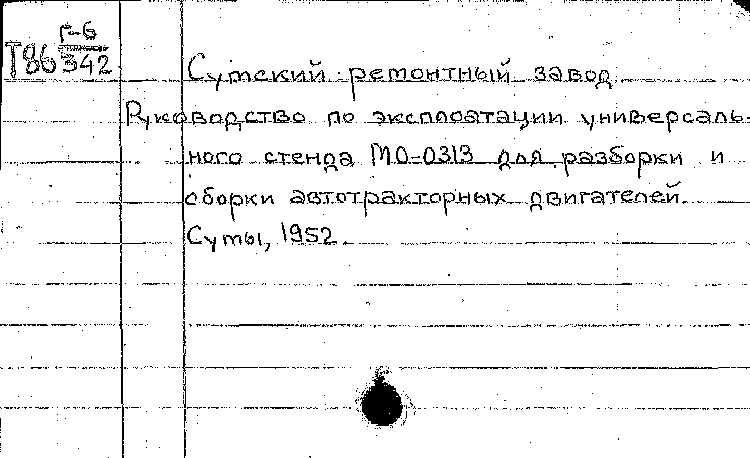 Г-6
Т86 342
Сутский ремонтный завод
Руководство по эксплоатации универсаль-
ного стенда МО-0313 для разборки и
сборки автотракторных двигателей.
Суты, 1952